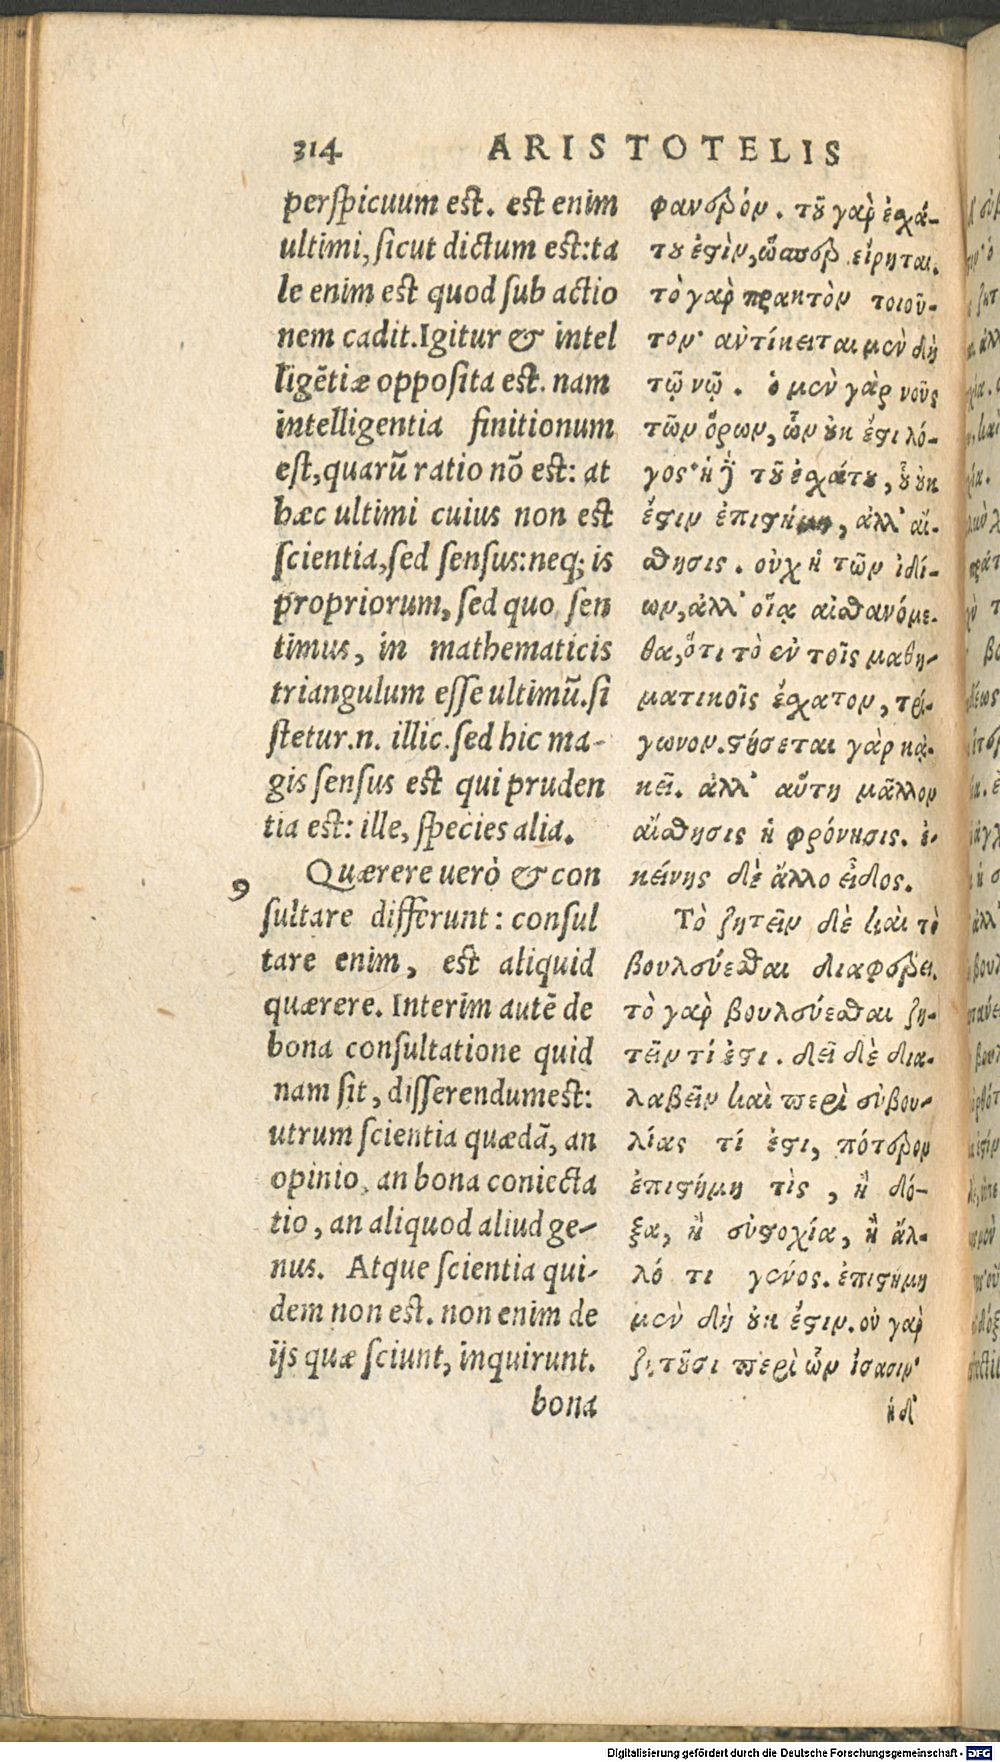 314 ARISTOTELIS
perſpicuum est. est enim
ultimi, ſicut dictum est:ta
le enim est quod ſub actio
nem cadit. Igitur & intel
ligẽtiæ oppoſita est. nam
intelligentia finitionum
eſt, quarũ ratio nõ est: at
hæc ultimi cuius non est
ſcientia, ſed ſenſus: neq; is
propriorum, ſed quo ſen
timus, in mathematicis
triangulum eſſe ultimũ. ſi
ſtetur.n. illic. ſed hic ma-
gis ſenſus est qui pruden
tia est: ille, ſpecies alia.
9 Quærere uerò & con
ſultare differunt: conſul
tare enim, est aliquid
quærere. Interim autẽ de
bona conſultatione quid
nam ſit, diſſerendumest:
utrum ſcientia quædã, an
opinio, an bona coniecta
tio, an aliquod aliud ge-
nus. Atque ſcientia qui-
dem non est. non enim de
ijs quæ ſciunt, inquirunt.
bona
φανερόν. τοῦ γὰρ ἐσχά-
του ἐστὶν, ὥσπερ εἴρηται.
τὸ γὰρ πρακτὸν τοιοῦ-
τον· ἀντίκειται μὲν δὴ
τῷ νῷ. ὁ μὲν γὰρ νοῦς
τῶν ὅρων, ὧν οὐκ ἔστι λό-
γος· ἡ δὲ τοῦ ἐσχάτου, οὗ οὐκ
ἔστιν ἐπιστήμη, ἀλλ' αἴ-
σθησις. οὐχ ἡ τῶν ἰδί-
ων, ἀλλ' οἵᾳ αἰσθανόμε-
θα, ὅτι τὸ ἐν τοῖς μαθη-
ματικοῖς ἔσχατον, τρί-
γωνον. στήσεται γὰρ κἀ-
κεῖ. ἀλλ' αὕτη μᾶλλον
αἴσθησις ἡ φρόνησις. ἐ-
κείνης δὲ ἄλλο εἶδος.
Τὸ ζητεῖν δὲ καὶ τὸ
βουλεύεσθαι διαφέρει.
τὸ γὰρ βουλεύεσθαι ζη-
τεῖν τί ἐστι. δεῖ δὲ δια-
λαβεῖν καὶ περὶ εὐβου-
λίας τί ἐστι, πότερον
ἐπιστήμη τὶς, ἢ δό-
ξα, ἢ εὐστοχία, ἢ ἄλ-
λό τι γένος. ἐπιστήμη
μὲν δὴ οὐκ ἔστιν. οὐ γὰρ
ζητοῦσι περὶ ὧν ἴσασιν·
ἡ δ'
Digitalisierung gefördert durch die Deutsche Forschungsgemeinschaft - DFG